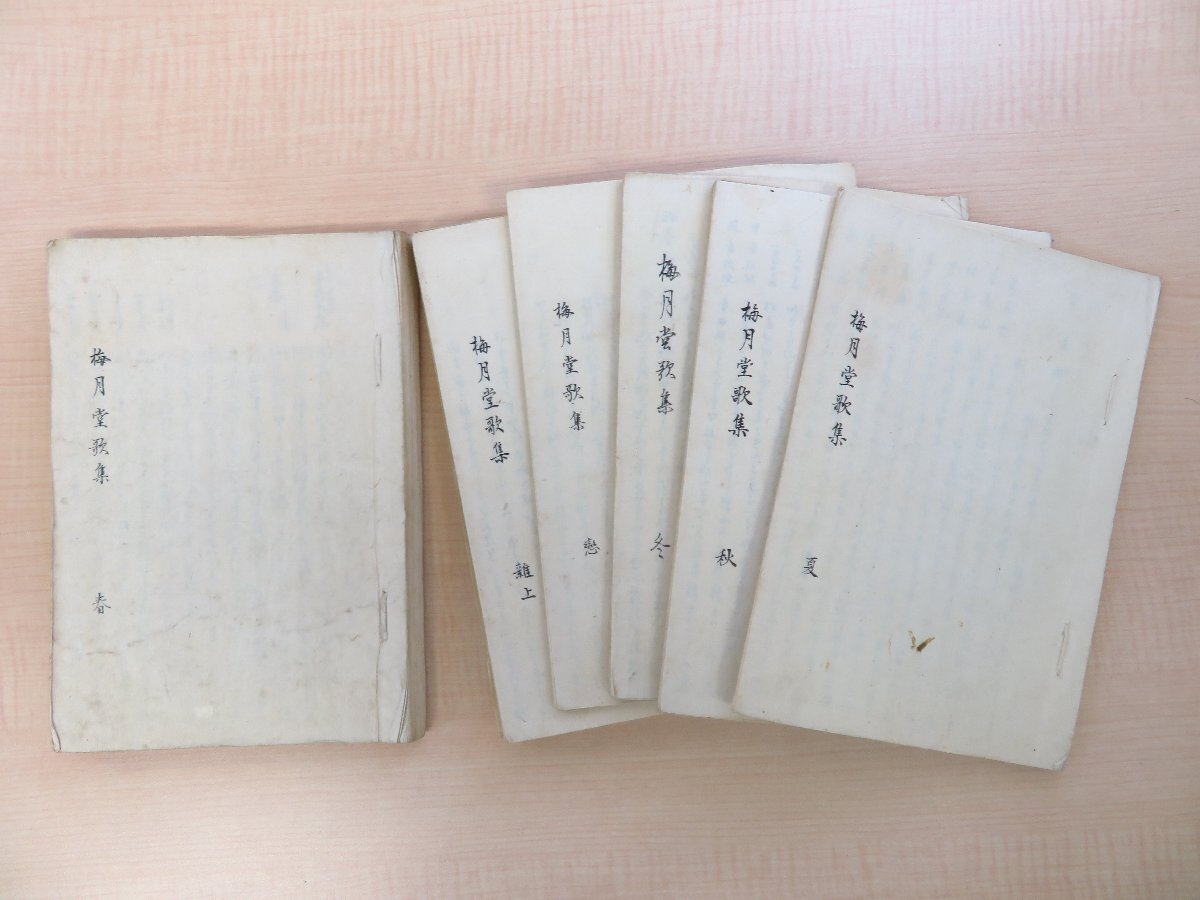 梅月堂歌集 春
梅月堂歌集 雜上
梅月堂歌集 戀
梅月堂歌集 冬
梅月堂歌集 秋
梅月堂歌集 夏